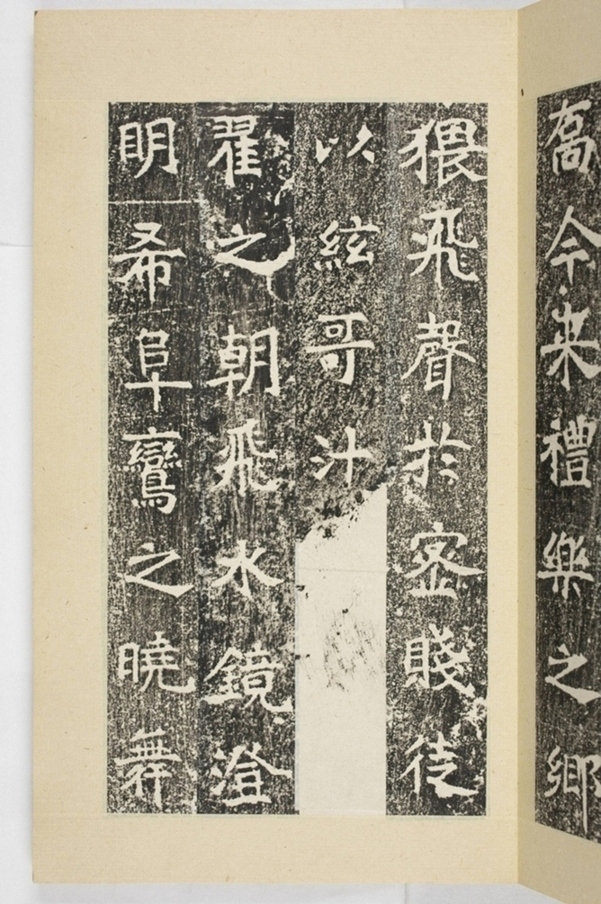 今来禮樂之鄉
猥飛聲於宓賤徒
以絃哥汁
翟之朝飛水鏡澄
明希阜鸞之曉舞